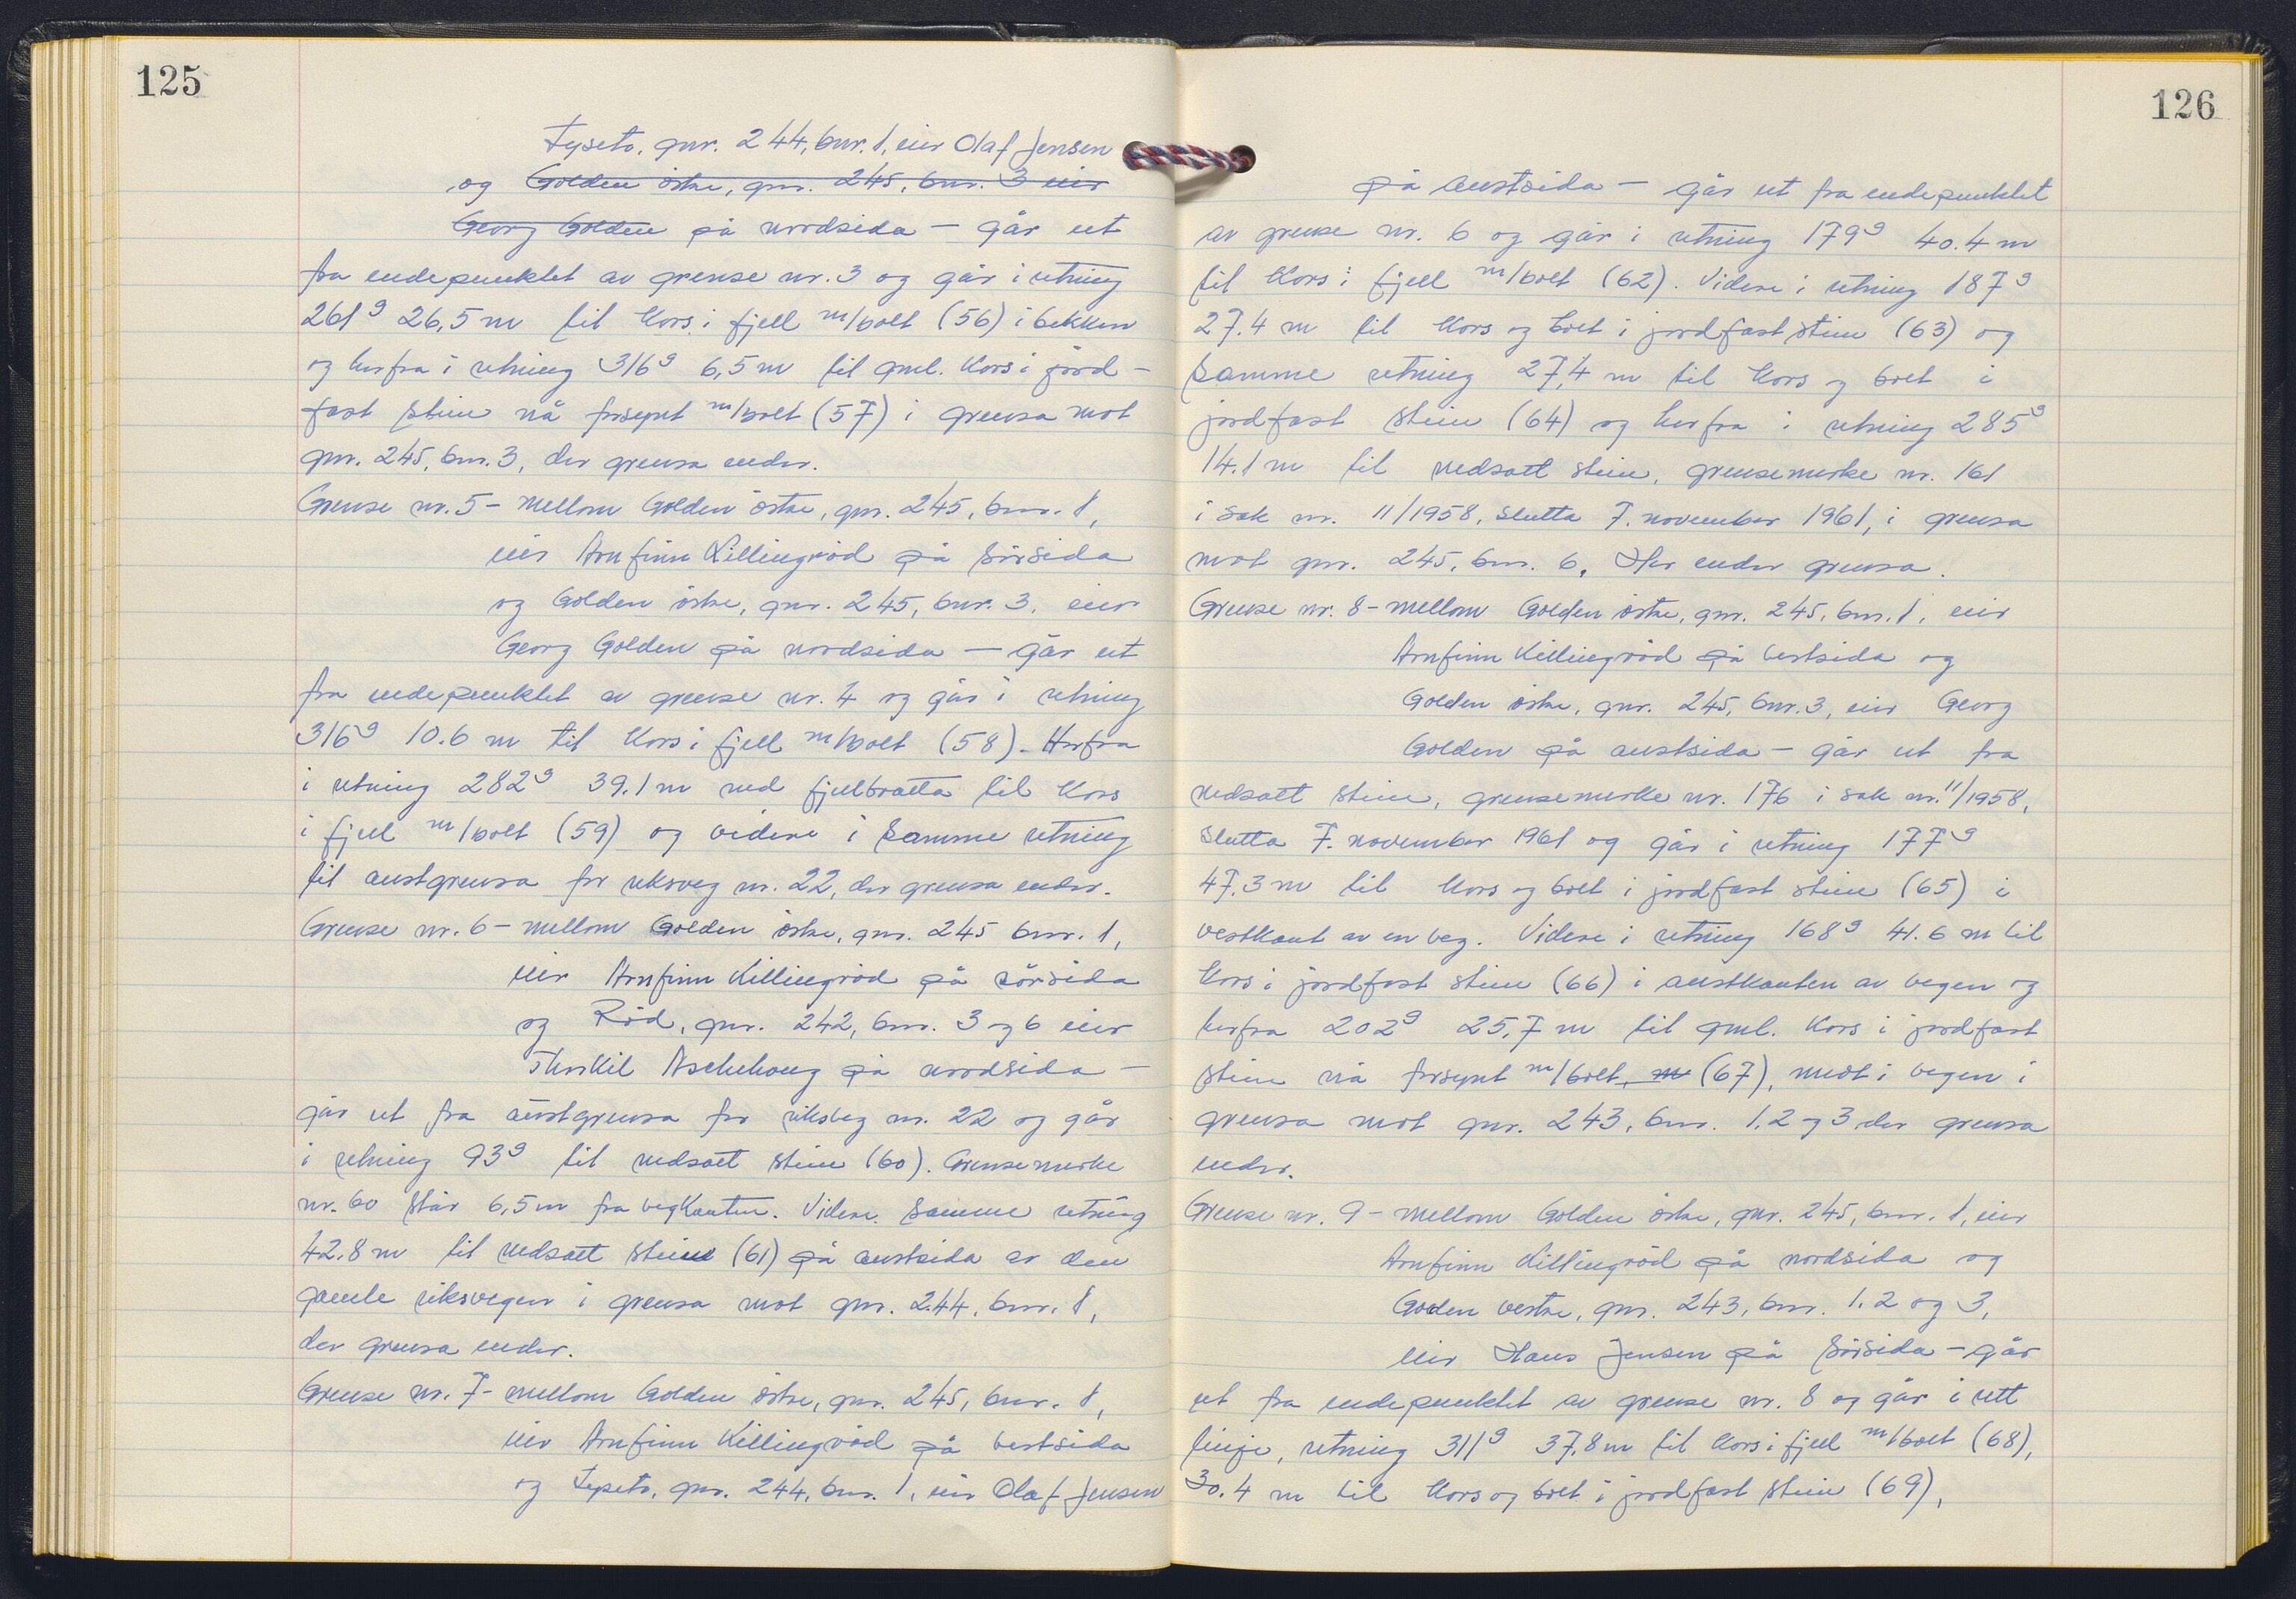 125
Lyseto, gnr. 244, bnr. 1, eier Olaf Jensen
og Golden östre, gnr. 245, bnr. 3 eier
Georg Golden på nordsida — går ut
fra endepunktet av grense nr. 3 og går i retning
261g 26,5 m til kors i fjell m/bolt (56) i bekken
og herfra i retning 316g 6,5 m til gml. kors i jord-
fast stein nå forsynt m/bolt (57) i grensa mot
gnr. 245, bnr. 3, der grensa ender.
Grense nr. 5 - mellom Golden östre, gnr. 245, bnr. 1,
eier Arnfinn Killingröd på sörsida
og Golden östre, gnr. 245, bnr. 3, eier
Georg Golden på nordsida — går ut
fra endepunktet av grense nr. 4 og går i retning
316g 10.6 m til kors i fjell m/bolt (58). Herfra
i retning 282g 39.1 m ned fjellbratta til kors
i fjell m/bolt (59) og videre i samme retning
til austgrensa for riksveg nr. 22, der grensa ender.
Grense nr. 6 - mellom Golden östre, gnr. 245 bnr. 1,
eier Arnfinn Killingröd på sörsida
og Röd, gnr. 242, bnr. 3 og 6 eier
Thorkil Aschehoug på nordsida —
går ut fra austgrensa for riksveg nr. 22 og går
i retning 93g til nedsatt stein (60). Grensemerke
nr. 60 står 6,5 m fra vegkanten. Videre samme retning
42.8 m til nedsatt stein (61) på austsida av den
gamle riksvegen i grensa mot gnr. 244, bnr. 1,
der grensa ender.
Grense nr. 7 - mellom Golden östre, gnr. 245, bnr. 1,
eier Arnfinn Killingröd på vestsida
og Lyseto, gnr. 244, bnr. 1, eier Olaf Jensen
126
på austsida — går ut fra endepunktet
av grense nr. 6 og går i retning 179g 40.4 m
til kors i fjell m/bolt (62). Videre i retning 187g
27.4 m til kors og bolt i jordfast stein (63) og
samme retning 27,4 m til kors og bolt i
jordfast stein (64) og herfra i retning 285g
14.1 m til nedsatt stein, grensemerke nr. 161
i sak nr. 11/1958, slutta 7. november 1961, i grensa
mot gnr. 245, bnr. 6. Her ender grensa.
Grense nr. 8 - mellom Golden östre, gnr. 245, bnr. 1, eier
Arnfinn Killingröd på vestsida og
Golden östre, gnr. 245, bnr. 3, eier Georg
Golden på austsida — går ut fra
nedsatt stein, grensemerke nr. 176 i sak nr. 11/1958,
slutta 7. november 1961 og går i retning 177g
47.3 m til kors og bolt i jordfast stein (65) i
vestkant av en veg. Videre i retning 168g 41.6 m til
kors i jordfast stein (66) i austkanten av vegen og
herfra 202g 25,7 m til gml. kors i jordfast
stein nå forsynt m/bolt, m (67), midt i vegen i
grensa mot gnr. 243, bnr. 1.2 og 3, der grensa
ender.
Grense nr. 9 - mellom Golden östre, gnr. 245, bnr. 1, eier
Arnfinn Killingröd på nordsida og
Goden vestre, gnr. 243, bnr. 1.2 og 3,
eier Hans Jensen på sörsida — går
ut fra endepunktet av grense nr. 8 og går i rett
linje, retning 311g 37.8 m til kors i fjell m/bolt (68),
30.4 m til kors og bolt i jordfast stein (69),